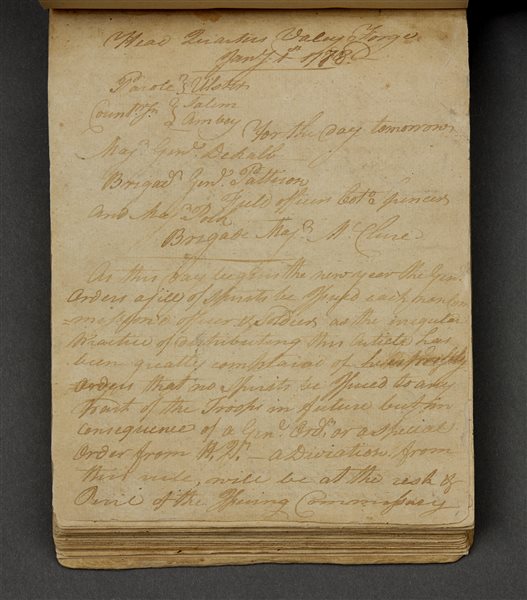 Head Quarters Valey Forge
Jany 1st 1778
Parole } Ulster
Countrsn } Salem
& Amboy For the day tomorrow
Majr Genl Dekalb
Brigadr Genl Patterson
Field officers Colo Spencer
And Majr Polk
Brigade Majr McClure
As this Day begins the new year the Genl
Orders a jill of Spirits be Issued each non Com
=missiond officer & Soldier as the iregular
Practice of distributing this Article has
been greatly complaind of he
orders that no Spirits be Issued to any
Part of the Troops in future but in
consequence of a Genl Ordr or a special
Order from H. Qrs — a Diviation from
this rule, will be at the risk &
Peril of the Issuing Commissary